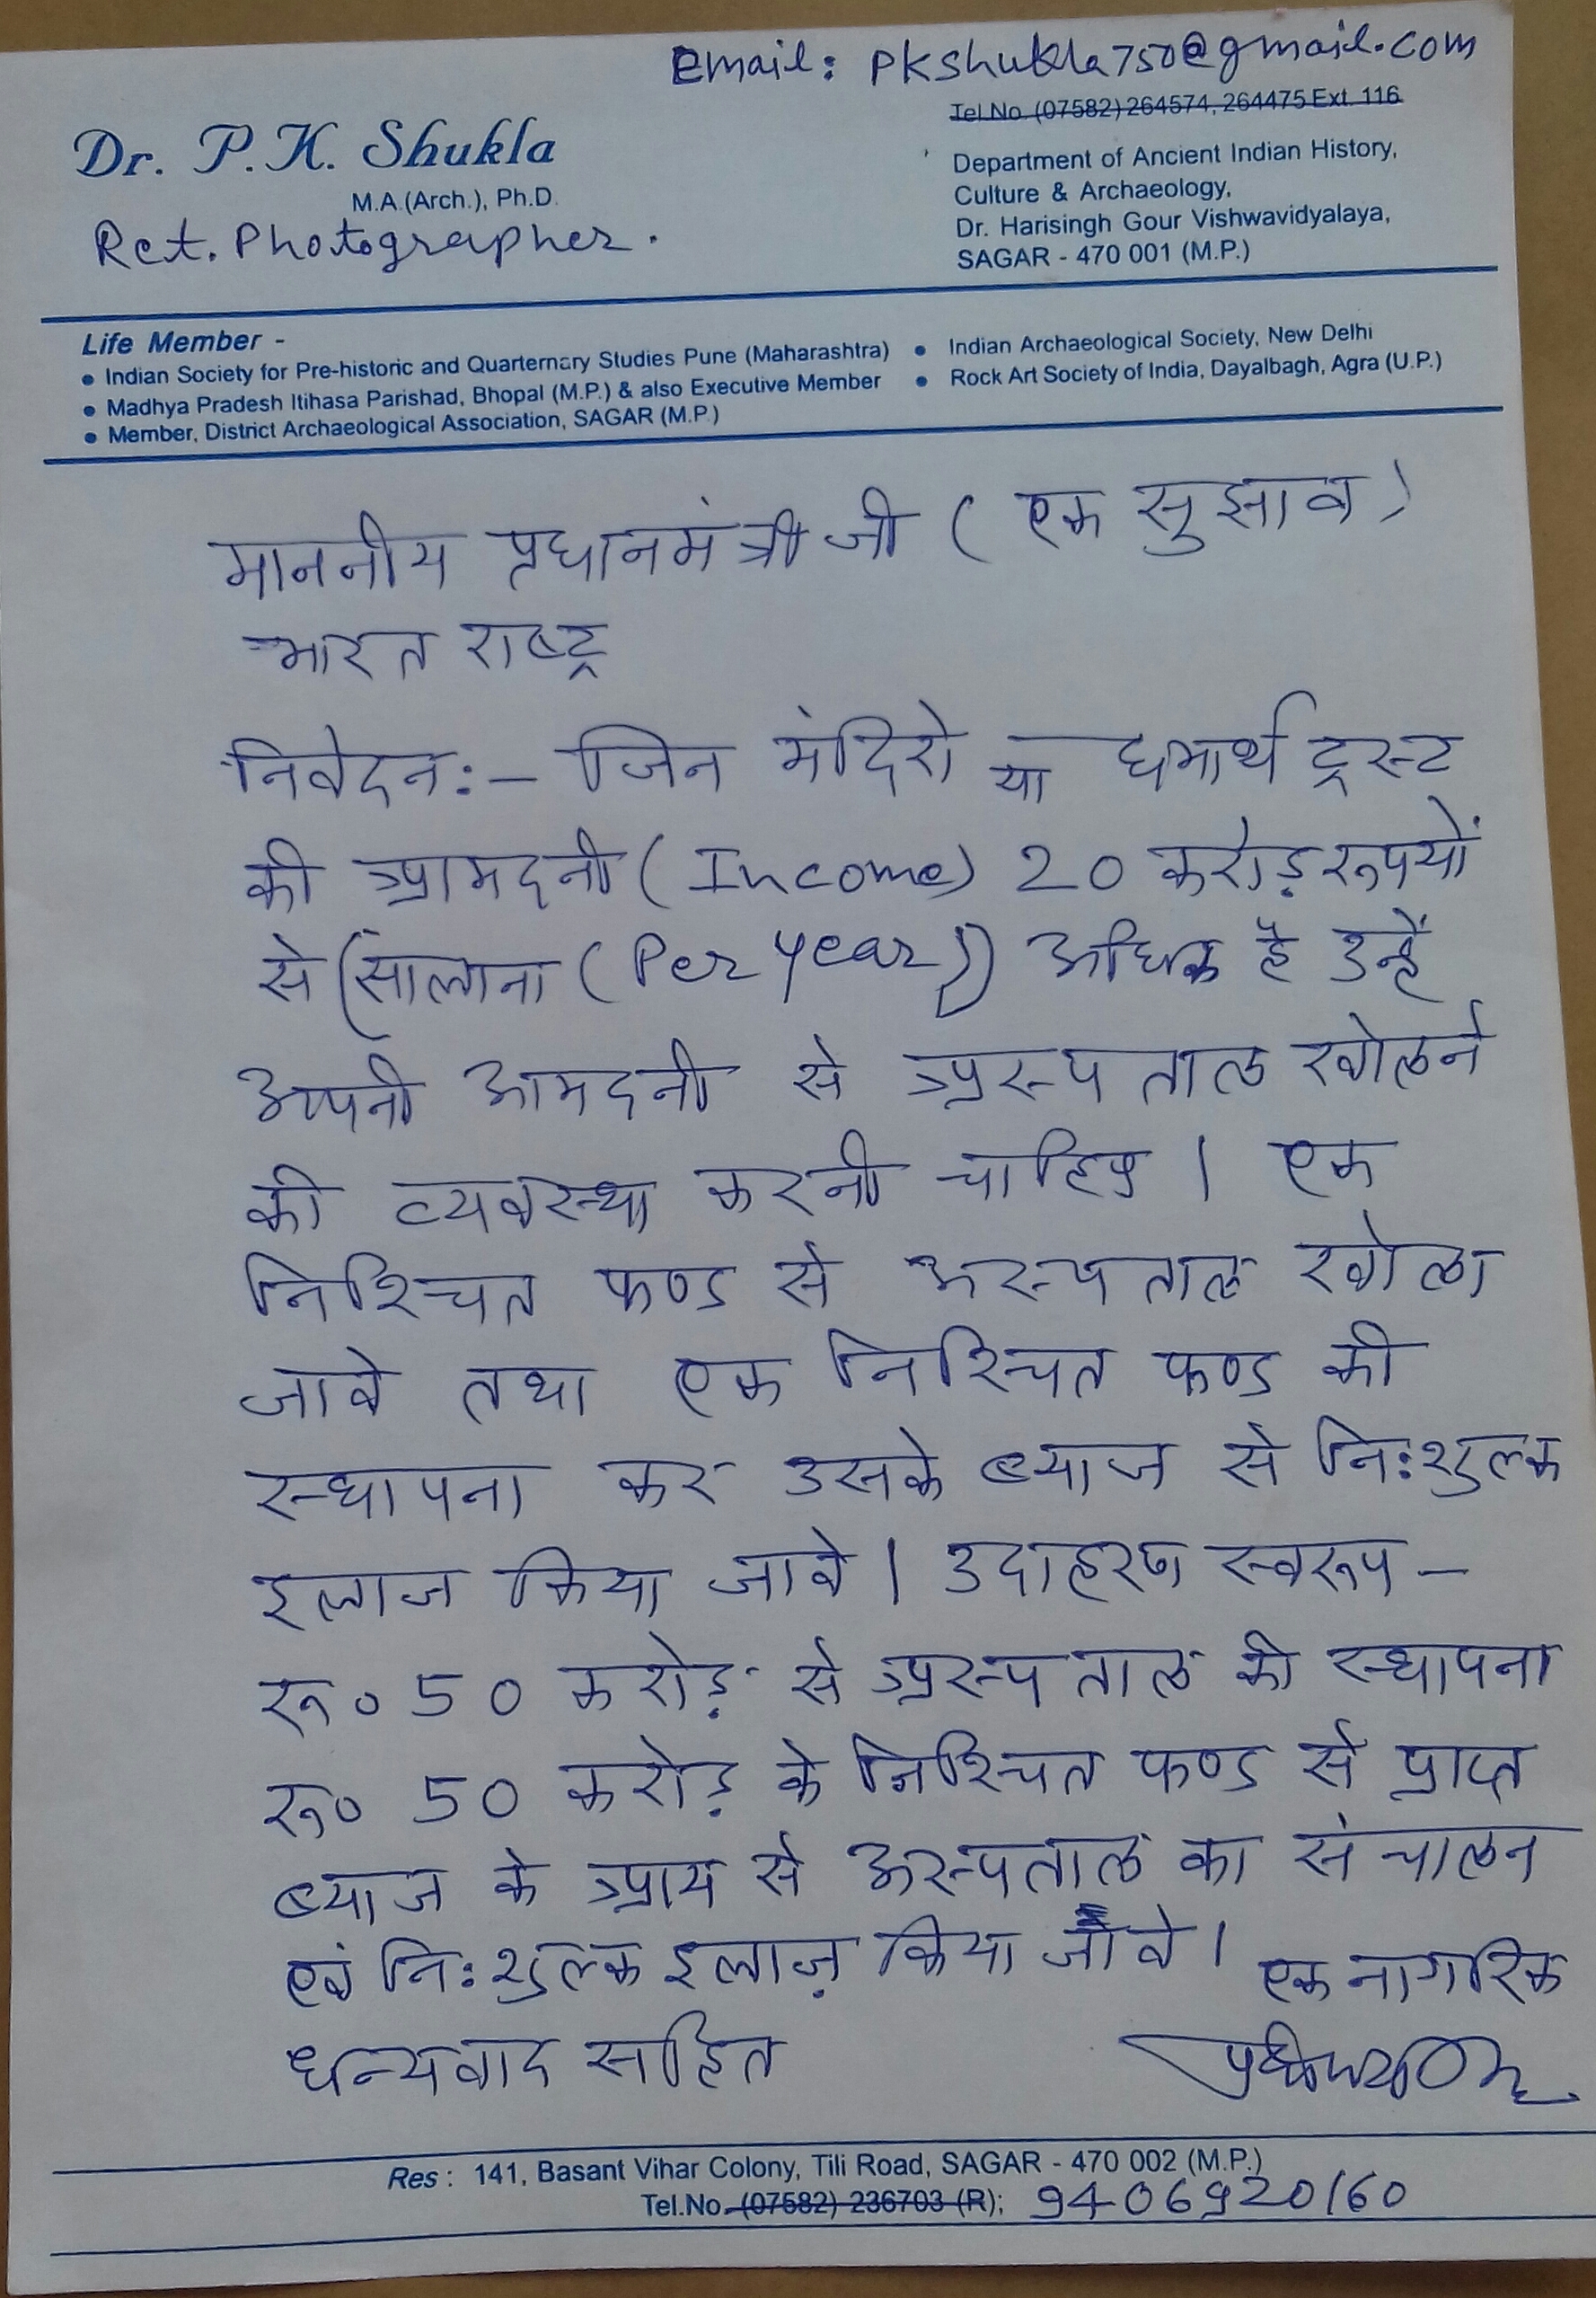 Email: pkshukla750@gmail.com
Tel.No. (07582) 264574, 264475 Ext. 116
Dr. P.K. Shukla
M.A.(Arch.), Ph.D.
Ret. Photographer.
Department of Ancient Indian History,
Culture & Archaeology,
Dr. Harisingh Gour Vishwavidyalaya,
SAGAR - 470 001 (M.P.)
Life Member -
• Indian Society for Pre-historic and Quarternary Studies Pune (Maharashtra)
• Madhya Pradesh Itihasa Parishad, Bhopal (M.P.) & also Executive Member
• Member, District Archaeological Association, SAGAR (M.P.)
• Indian Archaeological Society, New Delhi
• Rock Art Society of India, Dayalbagh, Agra (U.P.)
माननीय प्रधानमंत्री जी ( एक सुझाव )
भारत राष्ट्र
निवेदन:- जिन मंदिरो या धमार्थ ट्रस्ट
की आमदनी ( Income) 20 करोड़ रूपयों
से (सालाना ( Per year)) अधिक है उन्हें
अपनी आमदनी से अस्पताल खोलने
की व्यवस्था करनी चाहिए । एक
निश्चित फण्ड से अस्पताल खोला
जावे तथा एक निश्चित फण्ड की
स्थापना कर उसके ब्याज से नि:शुल्क
इलाज किया जावे । उदाहरण स्वरूप -
रू० 50 करोड़ से अस्पताल की स्थापना
रू० 50 करोड़ के निश्चित फण्ड से प्राप्त
ब्याज के आय से अस्पताल का संचालन
एवं नि:शुल्क इलाज़ किया जावे ।
एक नागरिक
धन्यवाद सहित
Res : 141, Basant Vihar Colony, Tili Road, SAGAR - 470 002 (M.P.)
Tel.No. (07582) 236703 (R); 9406920160